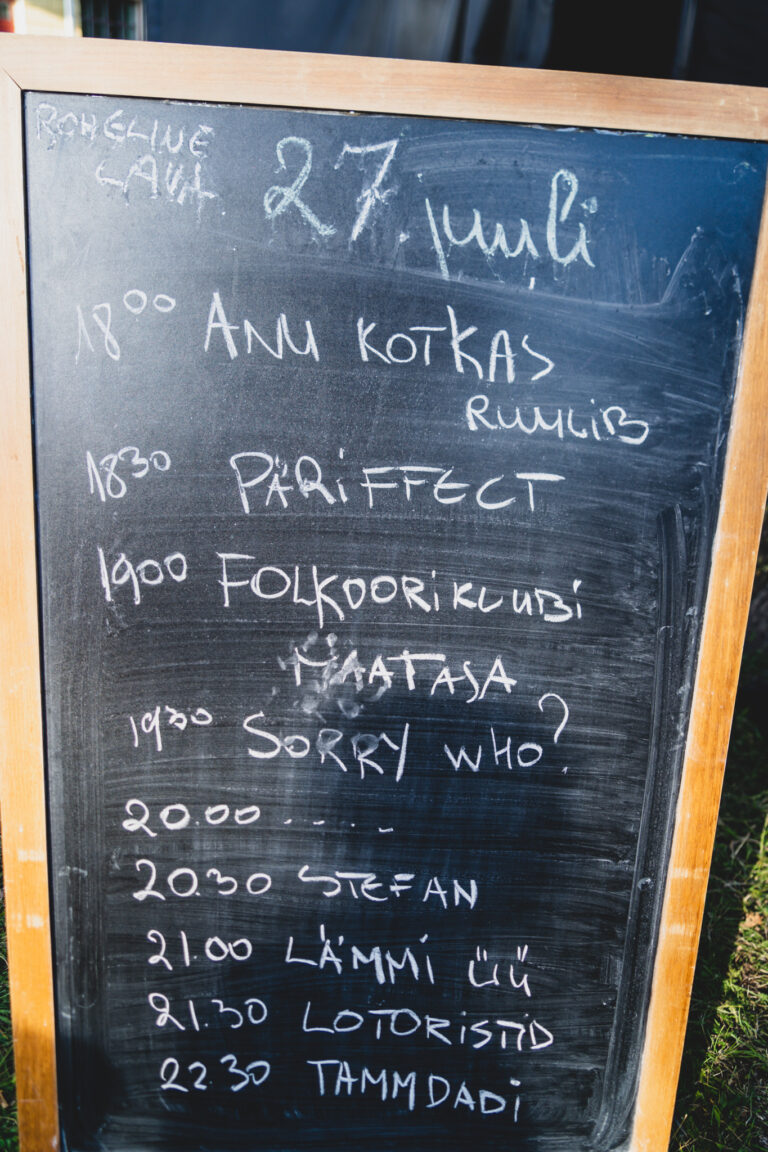 ROHELINE
LAVA
27. juuli
18 00 ANU KOTKAS
RUUULIB
18 30 PÄRiFFECT
1900 FOLKDORiKLUBi
MAATASA
1930 SORRY WHO?
20.00 ....
20.30 STEFAN
21.00 LÄMMi ÜÜ
21.30 LOTORiSTiD
22.30 TAMMDADi